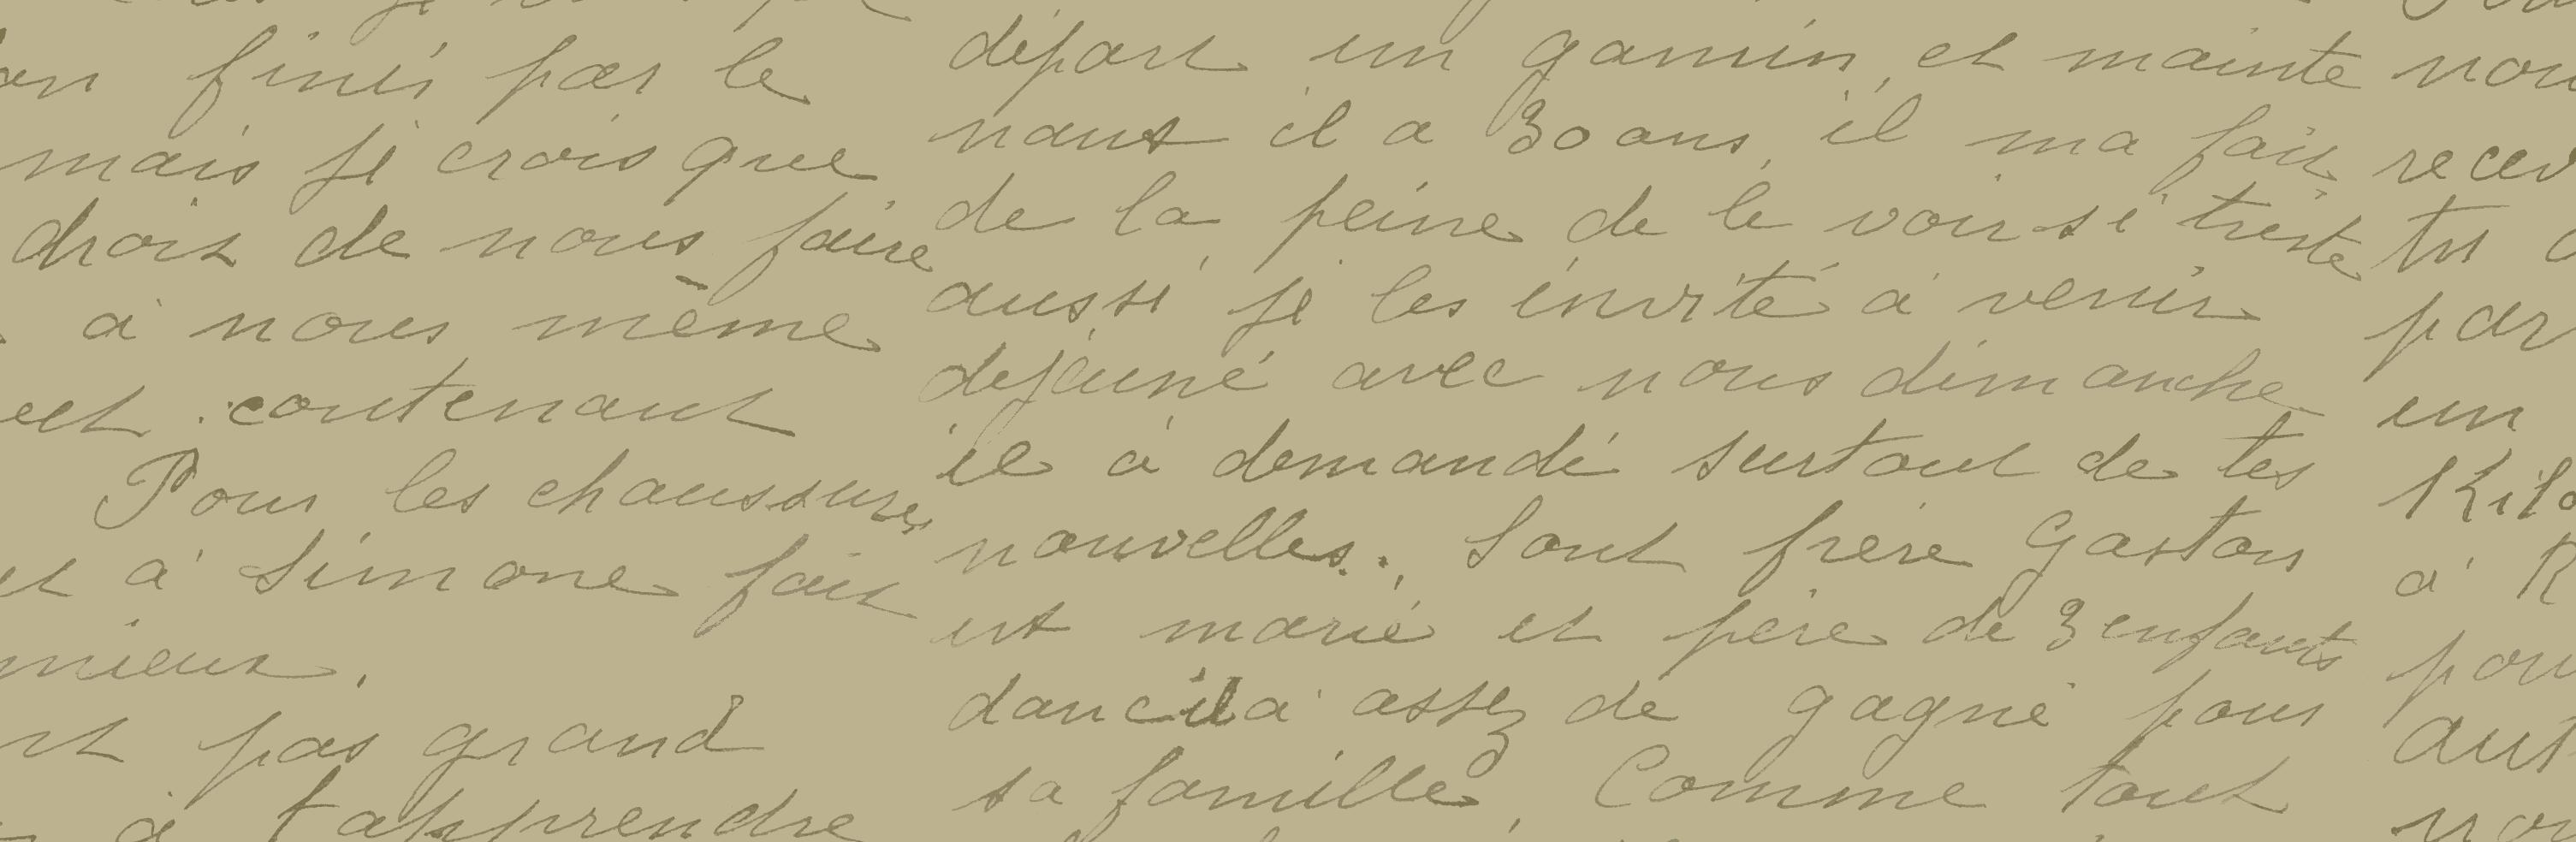 on finis par le
mais je crois que
droit de nous faire
à nous même
contenant
Pour les chaussures
et à Simone fait
mieux.
pas grand
à t'apprendre
départ un gamin, et mainte
nant il a 30 ans, il ma fait
de la peine de le voir si triste
aussi je les invité à venir
dejeuné avec nous dimanche
il à demandé surtout de tes
nouvelles. Sont frère Gaston
est marié et père de 3 enfants
danc il à assez de gagné pour
sa famille, Comme tout
nou
recev
tu
par
un
Kilo
à
pou
aut
nou